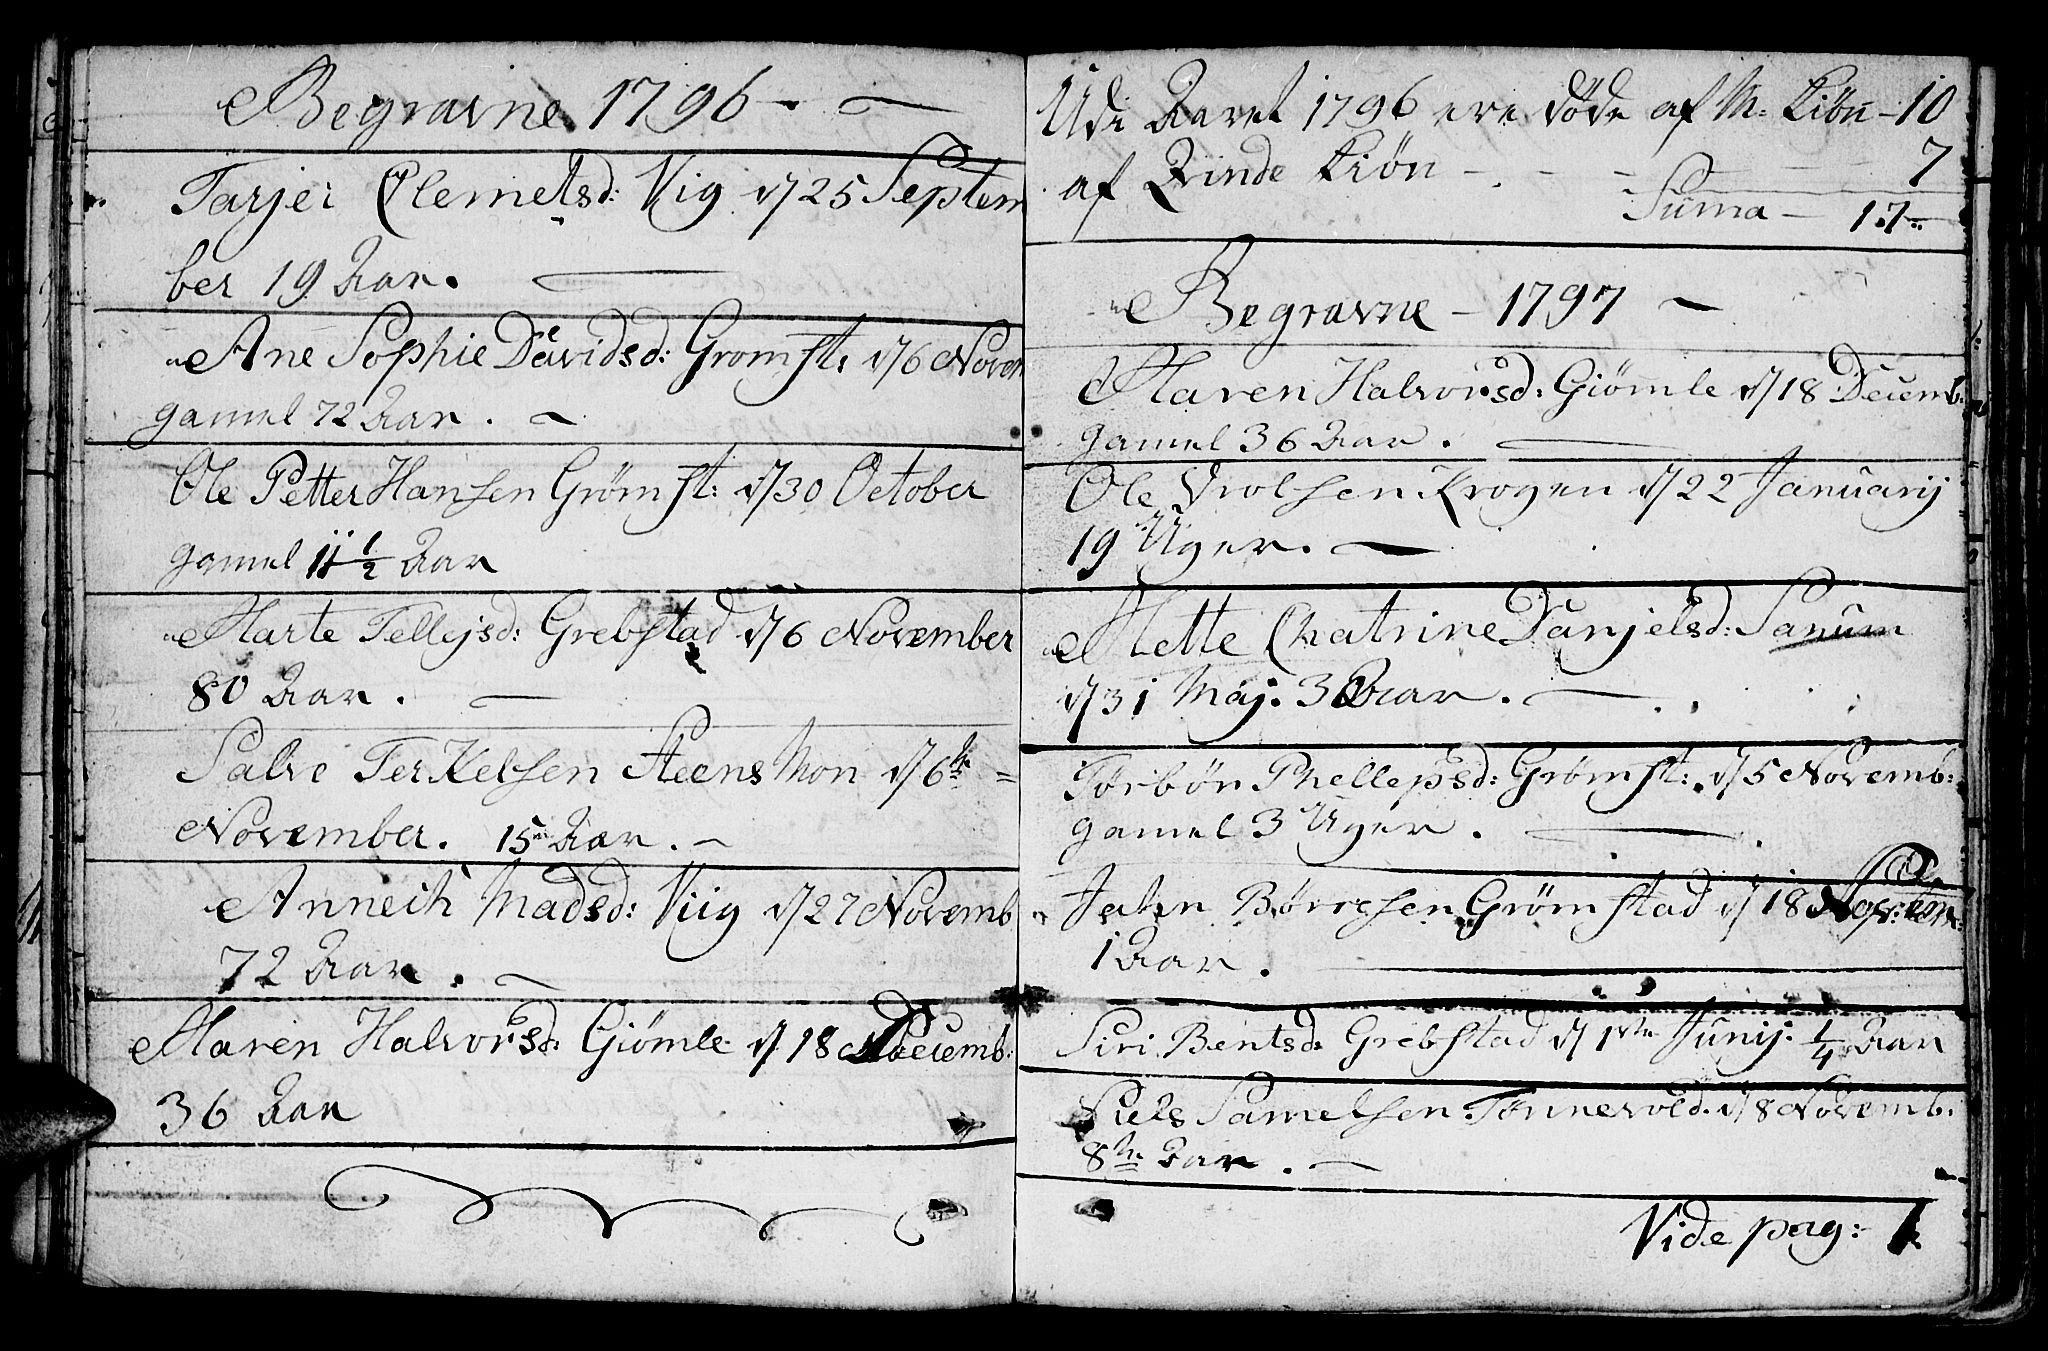 Begravne 1796 -
Tarjer Clemetsd: Vig d/ 25 Septem
ber 19 Aar.
Ane Sophie Davidsd: Gromst: d/ 6 Novem
gamel 72 Aar. -
Ole Petter Hansen Grømst: d/ 30 October
gamel 11 1/2 Aar
Marte Tellejsd: Grebstad d/ 6 November
80 Aar.
Salve Terkelsen Steens Mon d/ 6te =
November. 15 Aar. -
Annech Madsd: Viig d/ 27 Novemb
72 Aar. -
Maren Halvorsd: Giömle d/ 18 Decemb:
36 Aar
Udi Aaret 1796 ere døde af M: Kiön - 10
af Qvinde Kiön - - - 7
Suma - 17
Begravne - 1797 -
Maren Halvorsd: Giömle d/ 18 Decemb:
gamel 36 Aar.
Ole Vrolsen Krogen d/ 22 Januarij
19 Uger. -
Mette Chatrine Danjelsd: Sanum
d/ 31 Maj. Aar. -
Törbön Phellepsd: Grømst: d/ 5 Novemb:
gamel 3 Uger.
Jahn Börresen Grömstad d/ 18
1 Aar.
Siri Bentsd: Grebstad d/ 1ste Junij. 1/4 Aar
Niels Samelsen Tønnevold d/ 8 Novemb:
8te Aar. -
Vide pag: 1